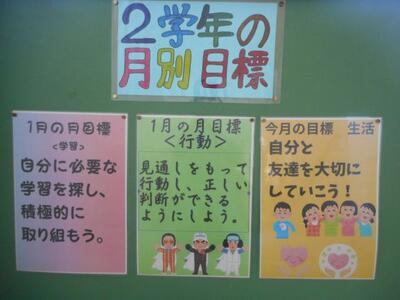 2学年の
月別目標
1月の月目標
<学習>
自分に必要な
学習を探し、
積極的に
取り組もう。
1月の月目標
<行動>
見通しをもって
行動し、正しい
判断ができる
ようにしよう。
今月の目標　生活
自分と
友達を大切に
していこう！